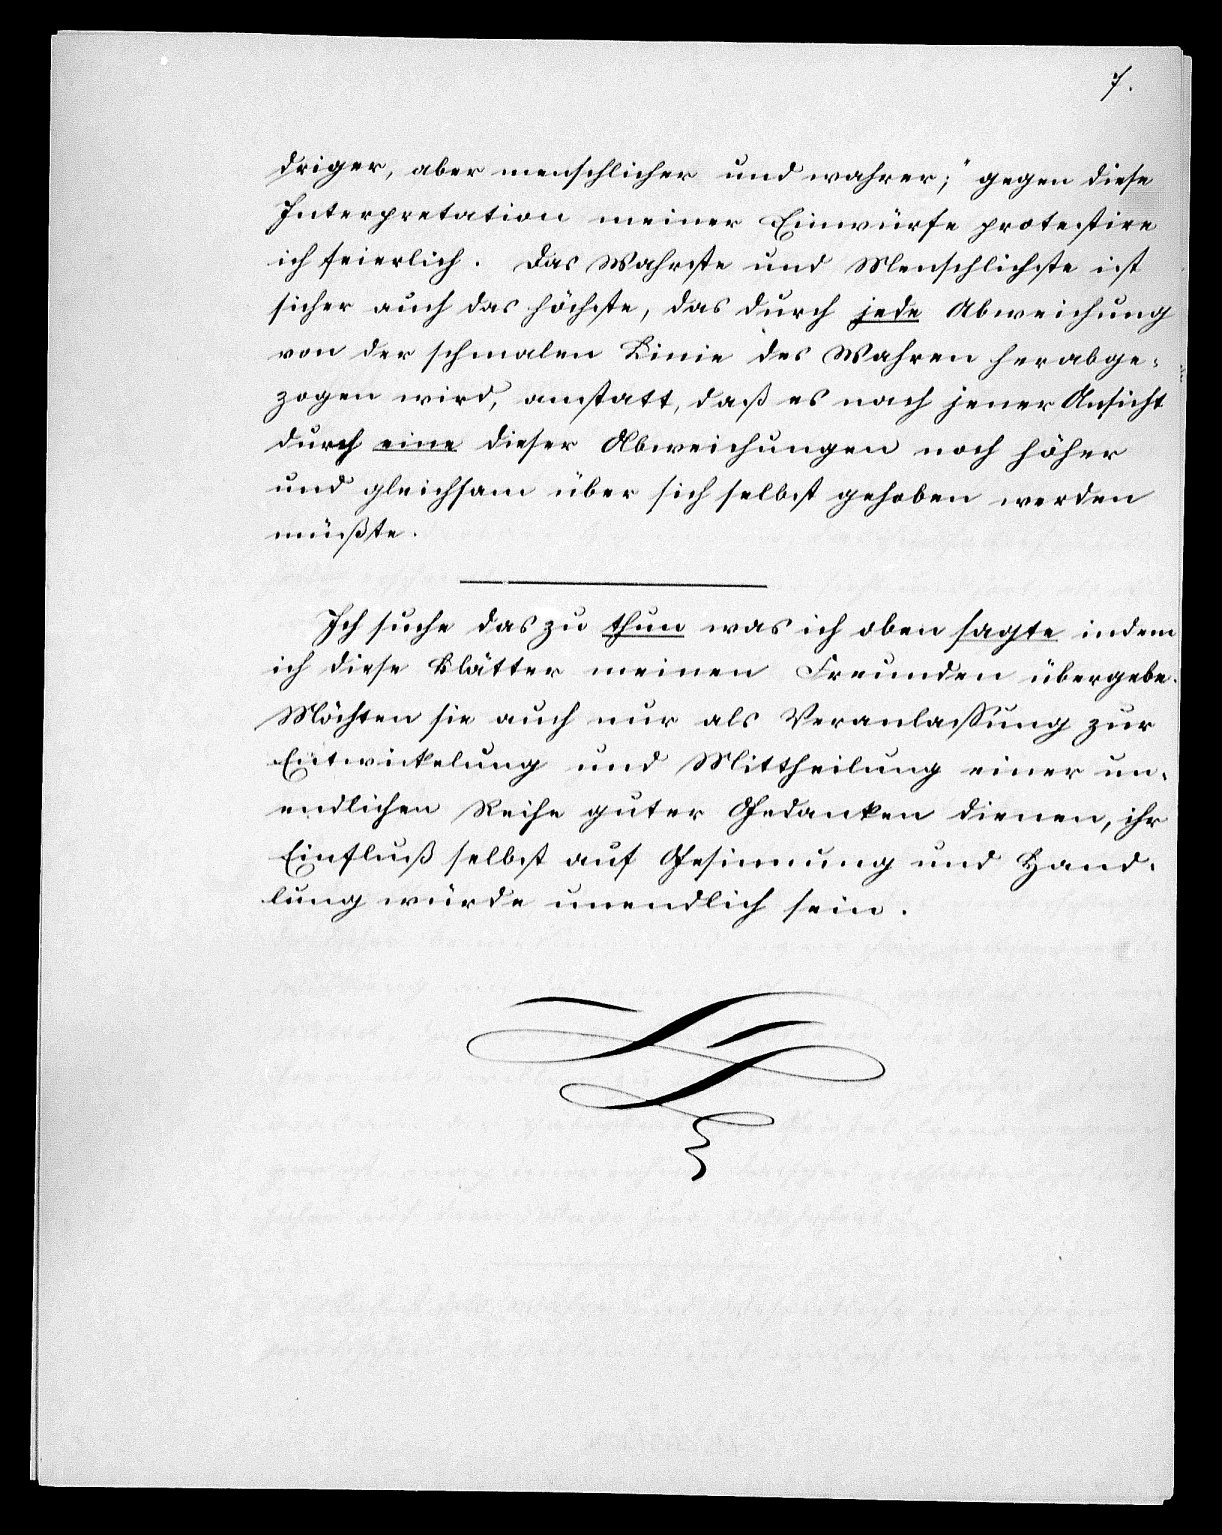 7.
driger, aber menschlicher und wahrer;" gegen diese
Interpretation meiner Einwürfe protestire
ich feierlich. Das Wahrste und Menschlichste ist
sicher auch das höchste, das durch jede Abweichung
von der schmalen Linie des Wahren herabge-
zogen wird, anstatt, daß es nach jener Ansicht
durch eine dieser Abweichungen noch höher
und gleichsam über sich selbst gehoben werden
müßte.
Ich suche das zu thun was ich oben sagte indem
ich diese Blätter meinen Freunden übergebe.
Möchten sie auch nur als Veranlaßung zur
Entwickelung und Mittheilung einer un-
endlichen Reihe guter Gedanken dienen, ihr
Einfluß selbst auf Gesinnung und Hand-
lung würde unendlich sein.